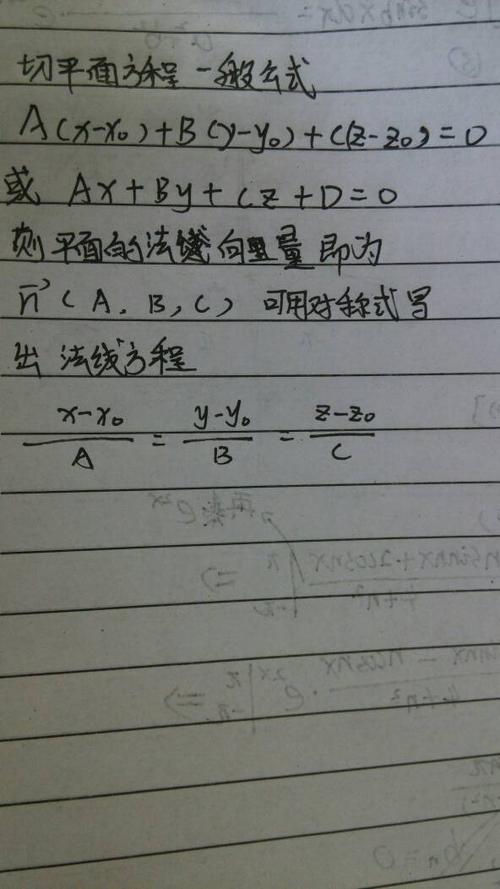 切平面方程一般公式
A(x-x₀)+B(y-y₀)+C(z-z₀)=0
或 Ax+By+Cz+D=0
则平面的法线向量即为
n⃗ (A, B, C) 可用对称式写
出 法线方程
(x-x₀)/A = (y-y₀)/B = (z-z₀)/C